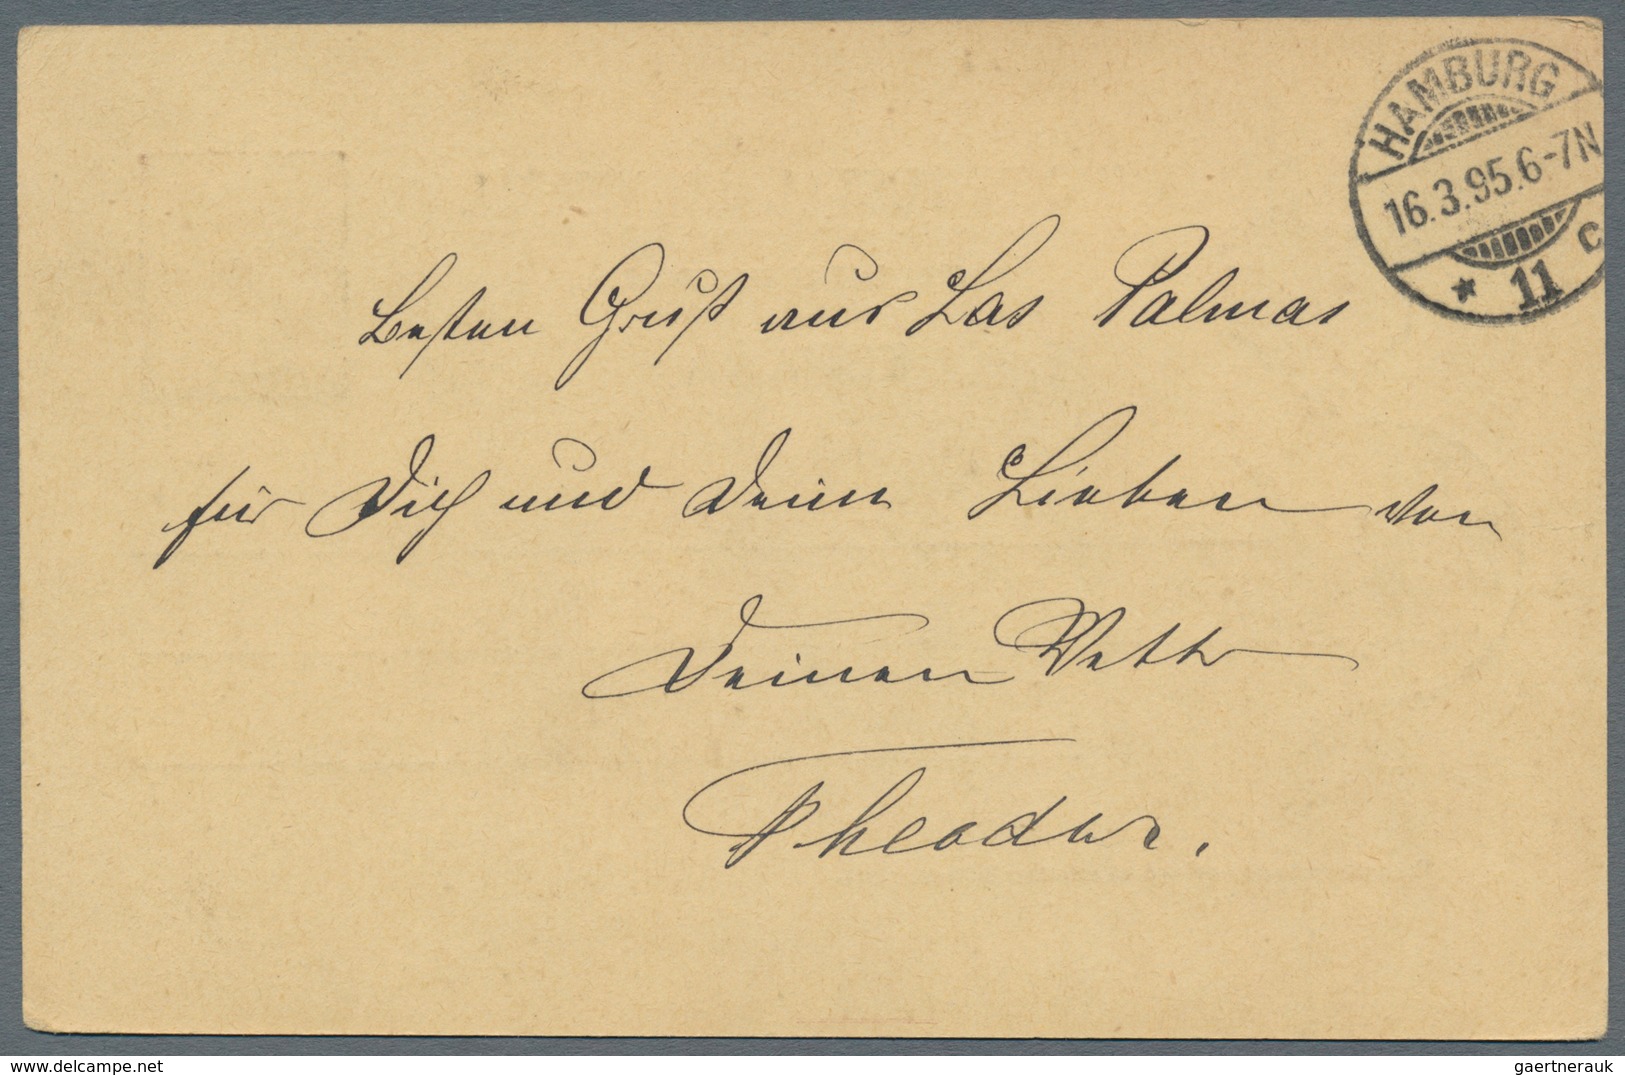 HAMBURG
16.3.95.6-7N
* 11 c
Besten Gruß aus Las Palmas
für Dich und Deine Lieben von
Deinen Vetter
Theodor.
delcampe.net
gaertnerauk